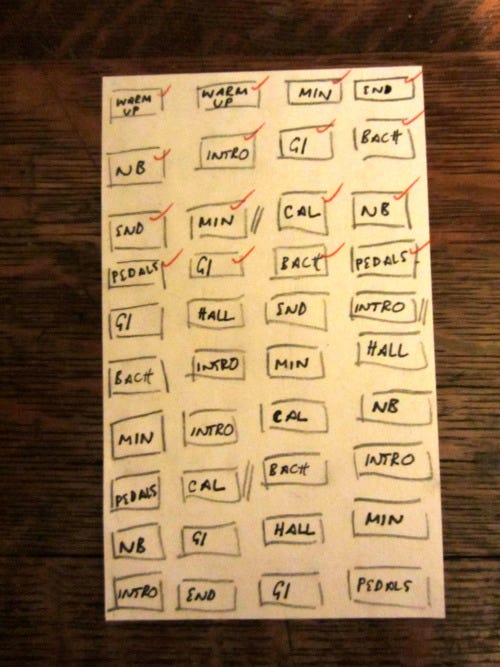 WARM UP WARM UP MIN END
NB INTRO GI BACH
END MIN CAL NB
PEDALS GI BACH PEDALS
GI HALL END INTRO
BACH INTRO MIN HALL
MIN INTRO CAL NB
PEDALS CAL BACH INTRO
NB GI HALL MIN
INTRO END GI PEDALS